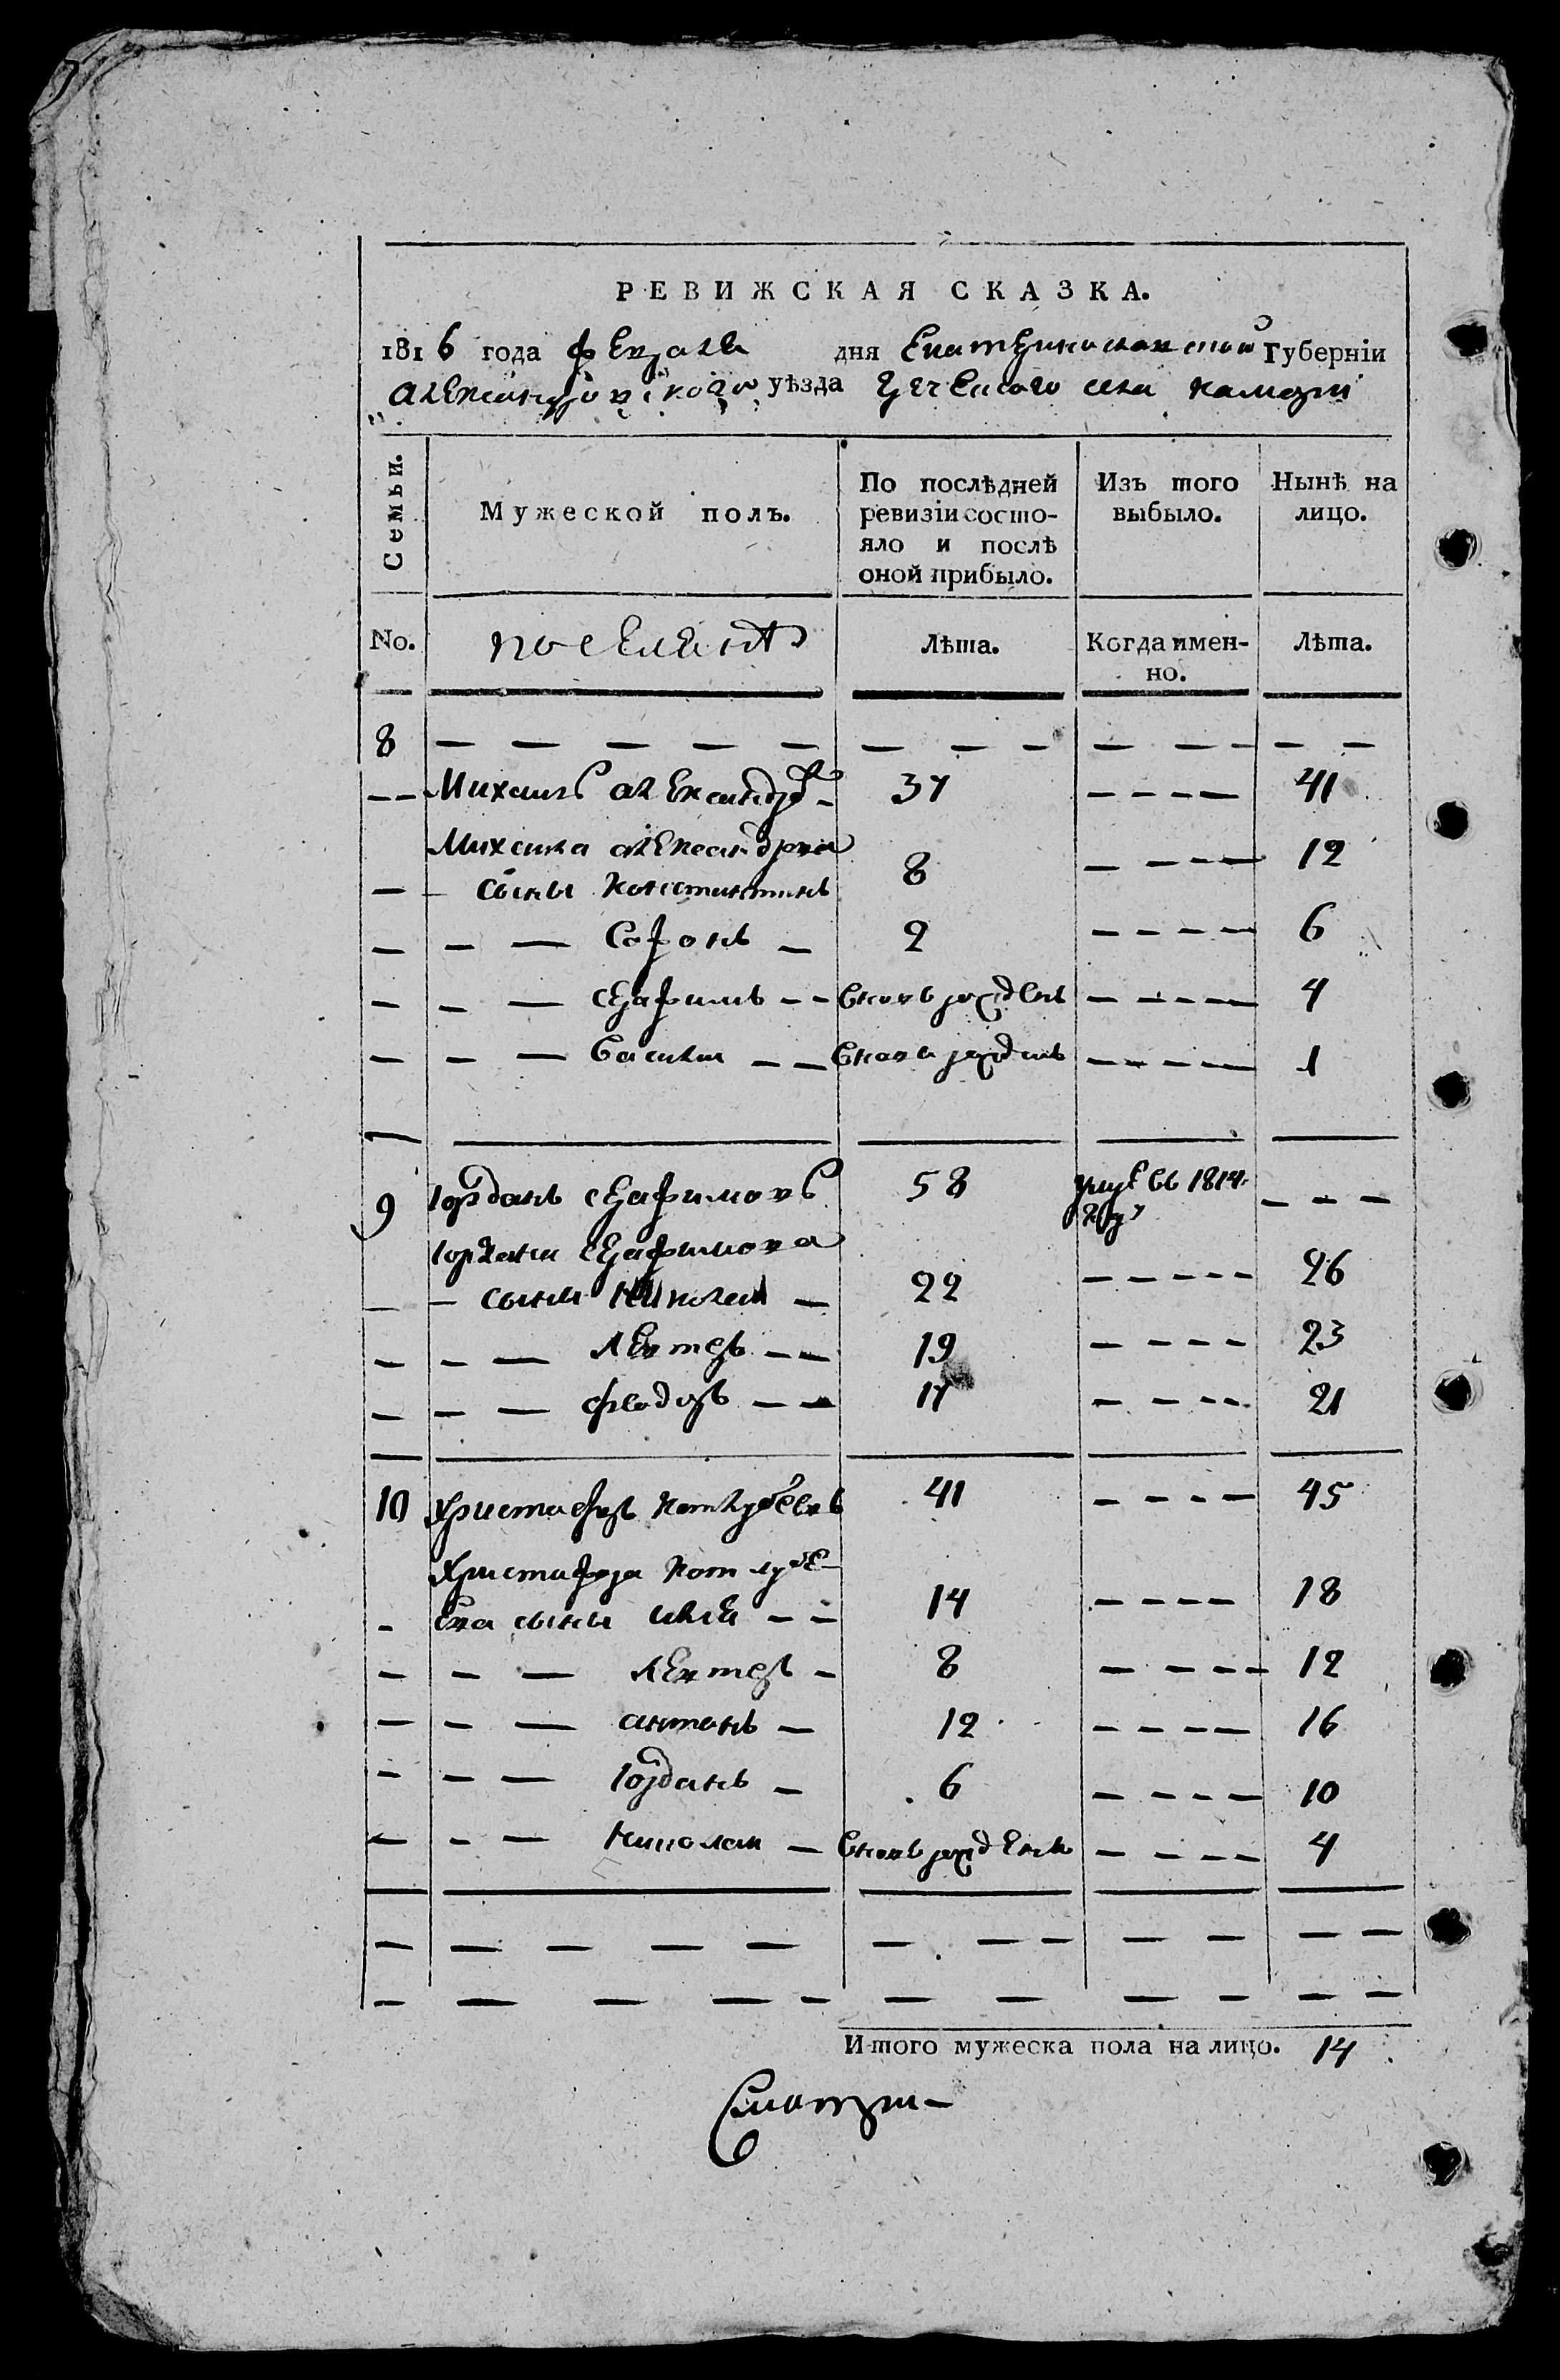 РЕВИЖСКАЯ СКАЗКА.
1816 года февраля дня Екатеринославской Губерніи
Александровского уѣзда греческого села
Семьи. Мужеской полъ. По послѣдней ревизіи состояло и послѣ оной прибыло. Изъ того выбыло. Нынѣ на лицо.
No. поселянъ Лѣта. Когда именно. Лѣта.
8
Михаилъ александровъ 37 41
Михаила александрова
сыны константинъ 8 12
Софонъ 2 6
серафимъ вновь рожденъ 4
Василии вновь рожденъ 1
9 Iорданъ серафимовъ 58 умре въ 1814 году
Iордана серафимова
сыны Николаи 22 26
лефтеръ 19 23
феодоръ 17 21
10 Христофоръ Котлубеевъ 41 45
Христофора Котлубе
ева сыны илия 14 18
лефтеръ 8 12
антонъ 12 16
Iорданъ 6 10
Николаи вновь рожденъ 4
Итого мужеска пола на лицо. 14